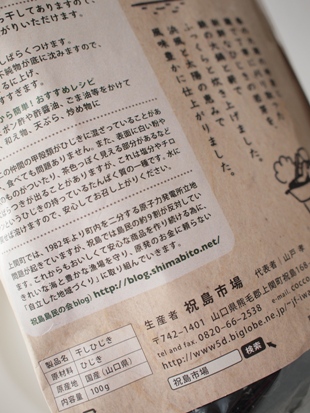 干してありますので、
がりいただけます。
しばらくつけます。
不純物が底に沈みますので、
るに上げ、
すすぎます。
簡単!おすすめレシピ
ポン酢や酢醤油、ごま油等をかけて
和え物、天ぷら、炒め物に
の仲間の甲殻類がひじきに混ざっていることがあ
、食べても問題ありません。また、表面に白い粉や
ものがついたり、茶色っぽく見える部分があるなど
ばらつきが出ることがありますが、これは塩分やチロ
いうひじきの持っているたんぱく質の一種です。水に
ば溶けますので、安心してお召し上がりください。
上関町では、1982年より町内を二分する原子力発電所立地
問題が起きていますが、祝島では島民の約9割が反対してい
ます。これからもおいしくて安心な商品を作り続けるために、
きれいな海と豊かな漁場を守り、原発のお金に頼らない
「自立した地域づくり」に取り組んでいきます。
祝島島民の会blog) http://blog.shimabito.net/
鍋の火と薪で炊き上げました。
浜風と太陽の恵みで、
ふっくらと
風味豊かに仕上がりました。
生産者 祝島市場 代表者:山戸 孝
〒742-1401 山口県熊毛郡上関町祝島168
tel and fax. 0820-66-2538
http://www5d.biglobe.ne.jp/
祝島市場 検索
製品名 干しひじき
原材料 ひじき
原産地 国産(山口県)
内容量 100g